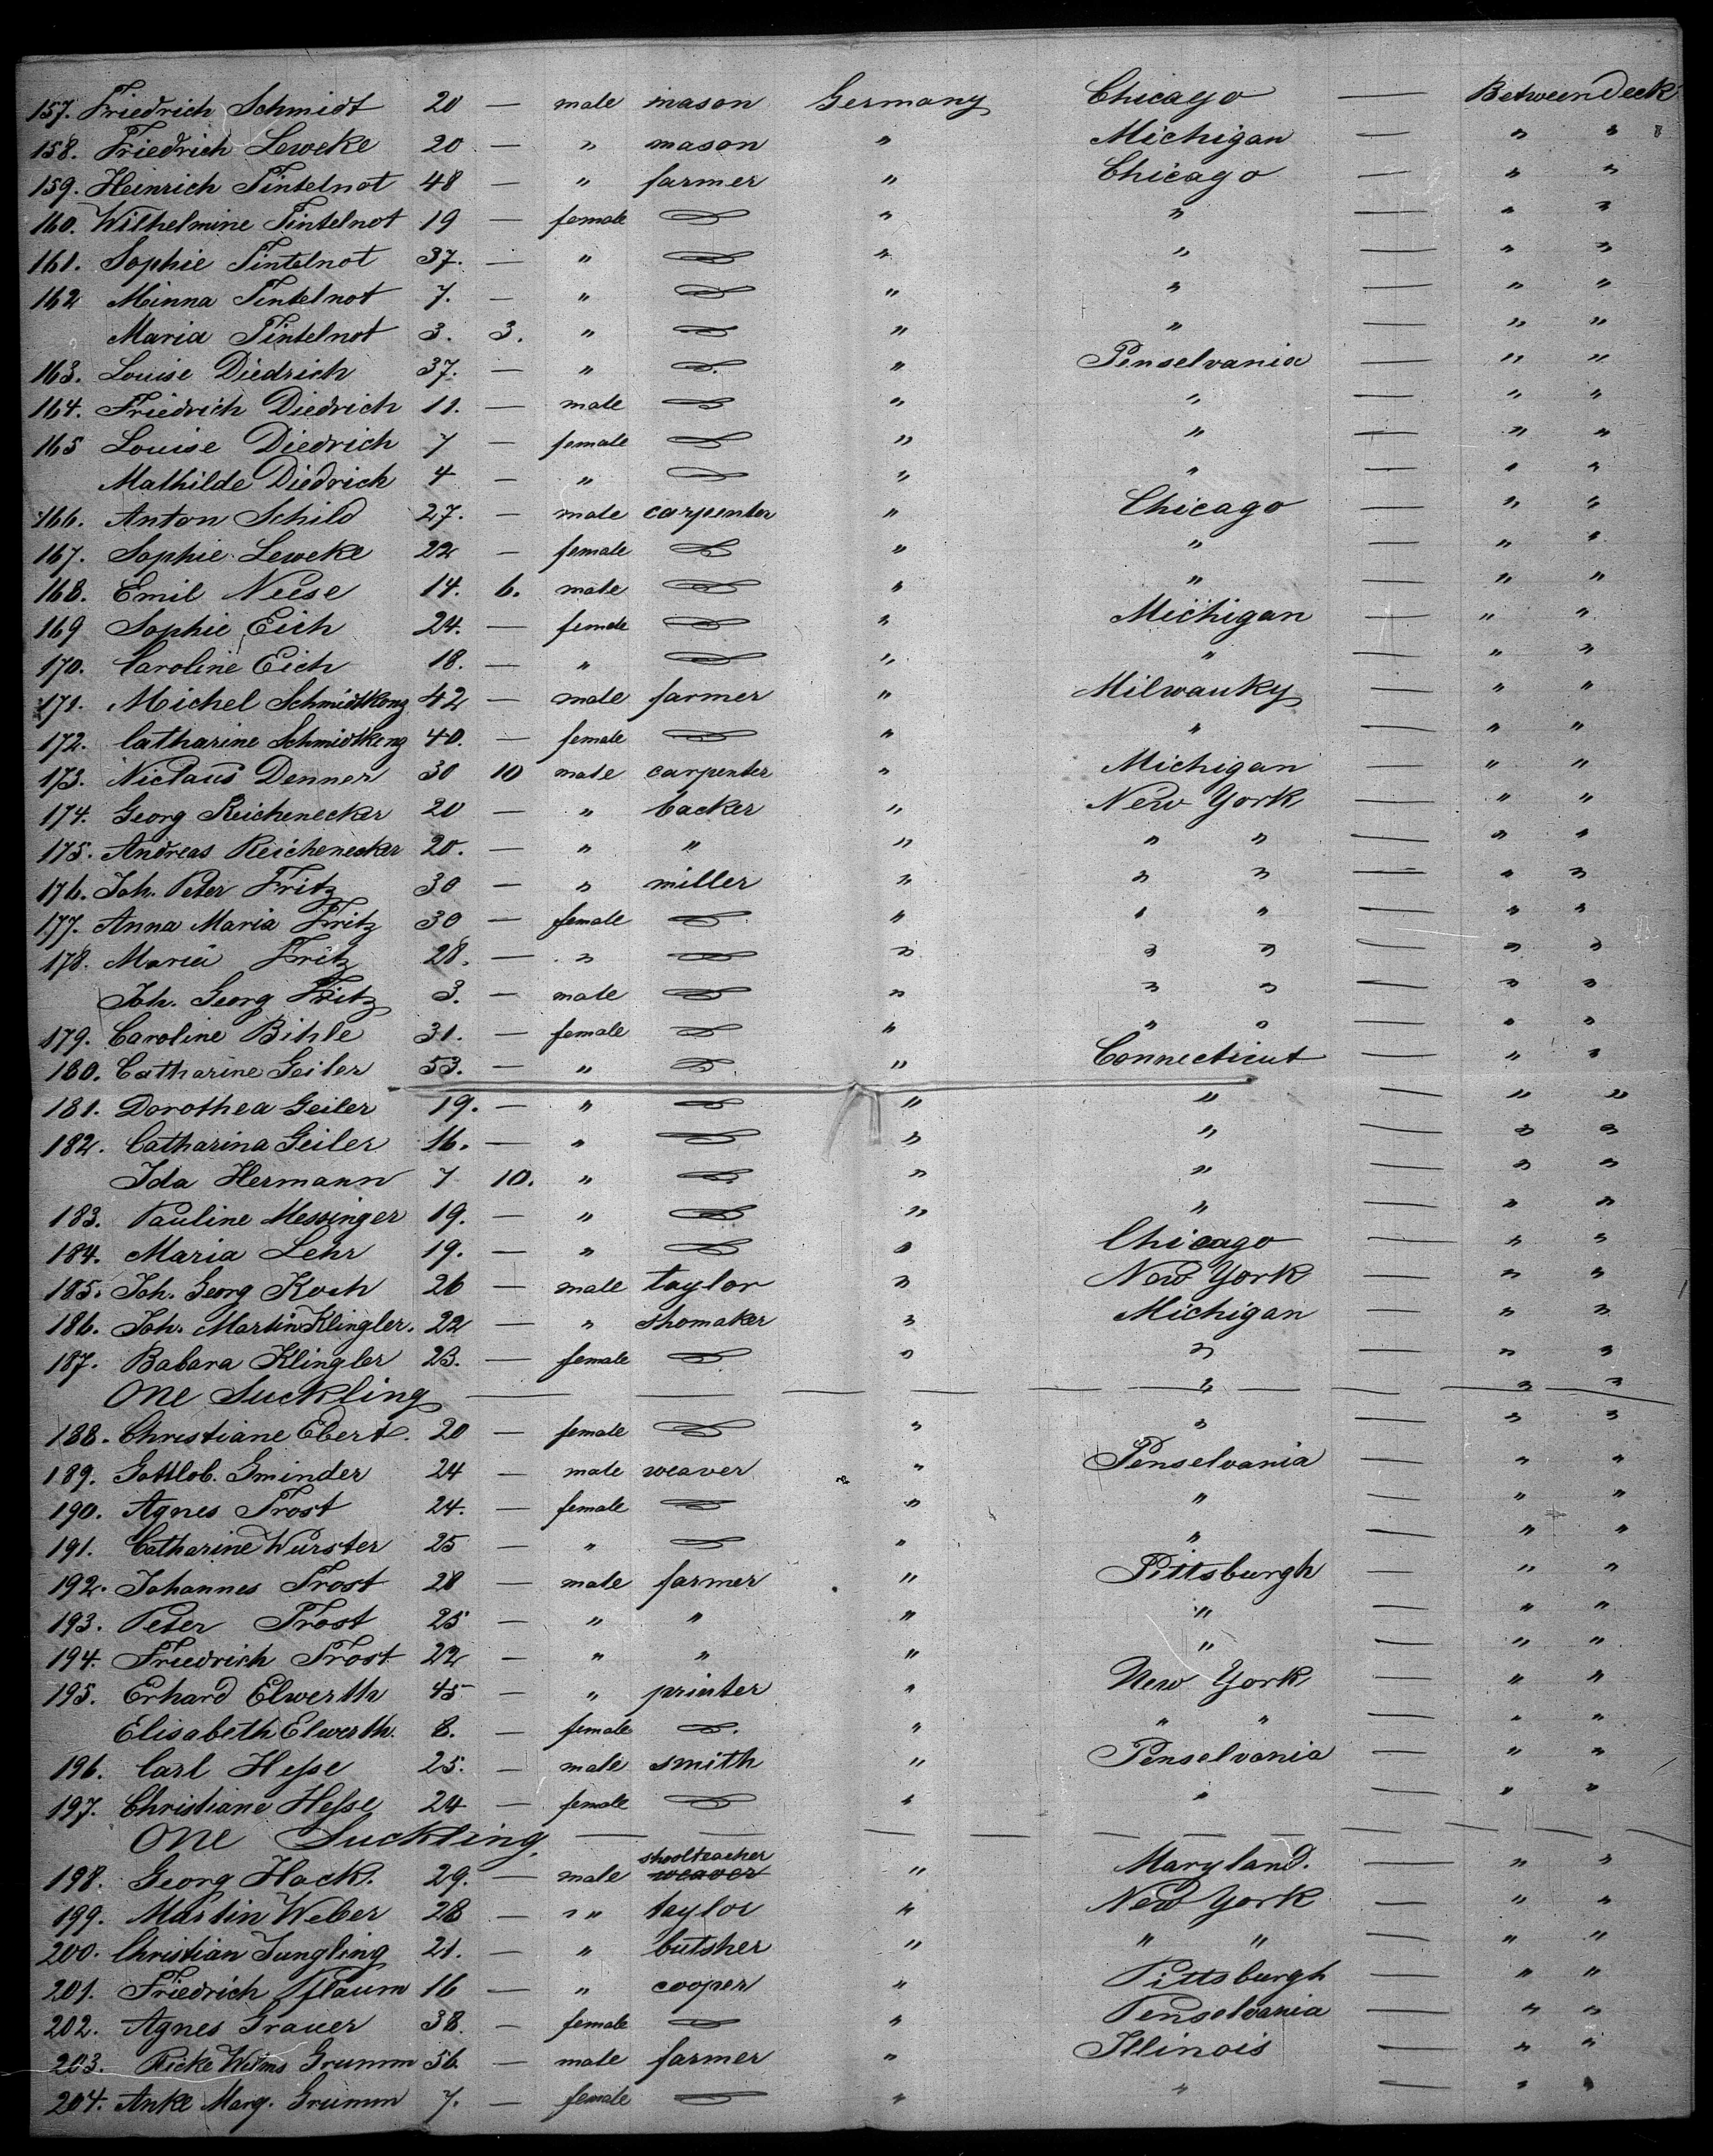 157. Friedrich Schmidt 20 — male mason Germany Chicago — Between Deck
158. Friedrich Leweke 20 — " mason " Michigan — " "
159. Heinrich Tintelnot 48 — " farmer " Chicago — " "
160. Wilhelmine Tintelnot 19 — female — " " — " "
161. Sophie Tintelnot 37. — " — " " — " "
162 Minna Tintelnot 7. — " — " " — " "
Maria Tintelnot 3. 3. " — " " — " "
163. Louise Diedrich 37. — " — " Penselvania — " "
164. Friedrich Diedrich 11. — male — " " — " "
165 Louise Diedrich 7 — female — " " — " "
Mathilde Diedrich 4 — " — " " — " "
166. Anton Schild 27. — male carpenter " Chicago — " "
167. Sophie Leweke 22 — female — " " — " "
168. Emil Neese 14. 6. male — " " — " "
169 Sophie Eich 24. — female — " Michigan — " "
170. Caroline Eich 18. — " — " " — " "
171. Michel 42 — male farmer " Milwauky — " "
172. Catharine 40. — female — " " — " "
173. Niclaus Denner 30 10 male carpenter " Michigan — " "
174. Georg Reichenecker 20 — " backer " New York — " "
175. Andreas Reichenecker 20. — " " " " " — " "
176. Joh. Peter Fritz 30 — " miller " " " — " "
177. Anna Maria Fritz 30 — female — " " " — " "
178. Maria Fritz 28. — " — " " " — " "
Joh. Georg Fritz 3. — male — " " " — " "
179. Caroline Bihle 31. — female — " " " — " "
180. Catharine Geiler 53. — " — " Connecticut — " "
181. Dorothea Geiler 19. — " — " " — " "
182. Catharina Geiler 16. — " — " " — " "
Ida Hermann 7 10. " — " " — " "
183. Pauline Messinger 19. — " — " " — " "
184. Maria Lehr 19. — " — " Chicago — " "
185. Joh. Georg Koch 26 — male taylor " New York — " "
186. Joh. Martin Klingler. 22 — " shomaker " Michigan — " "
187. Babara Klingler 23. — female — " " — " "
One Suckling — — — — " — " "
188. Christiane Ebert. 20 — female — " " — " "
189. Gottlob. Gminder 24 — male weaver " Penselvania — " "
190. Agnes Trost 24. — female — " " — " "
191. Catharine Wurster 25 — " — " " — " "
192. Johannes Trost 28 — male farmer " Pittsburgh — " "
193. Peter Trost 25 — " " " " — " "
194. Friedrich Trost 22 — " " " " — " "
195. Erhard Elwerth 45 — " printer " New York — " "
Elisabeth Elwerth. 8. — female — " " " — " "
196. Carl Hesse 25. — male smith " Penselvania — " "
197. Christiane Hesse 24 — female — " " — " "
One Suckling. — — — — — — —
198. Georg Hack. 29. — male shoolteacher weaver " Maryland. — " "
199. Martin Weber 28 — " " taylor " New York — " "
200. Christian Jungling 21. — " butsher " " " — " "
201. Friedrich Pflaum 16 — " cooper " Pittsburgh — " "
202. Agnes Grauer 38. — female — " Penselvania — " "
203. Grumm 56 — male farmer " Illinois — " "
204. Anke Marg. Grumm 7. — female — " " — " "